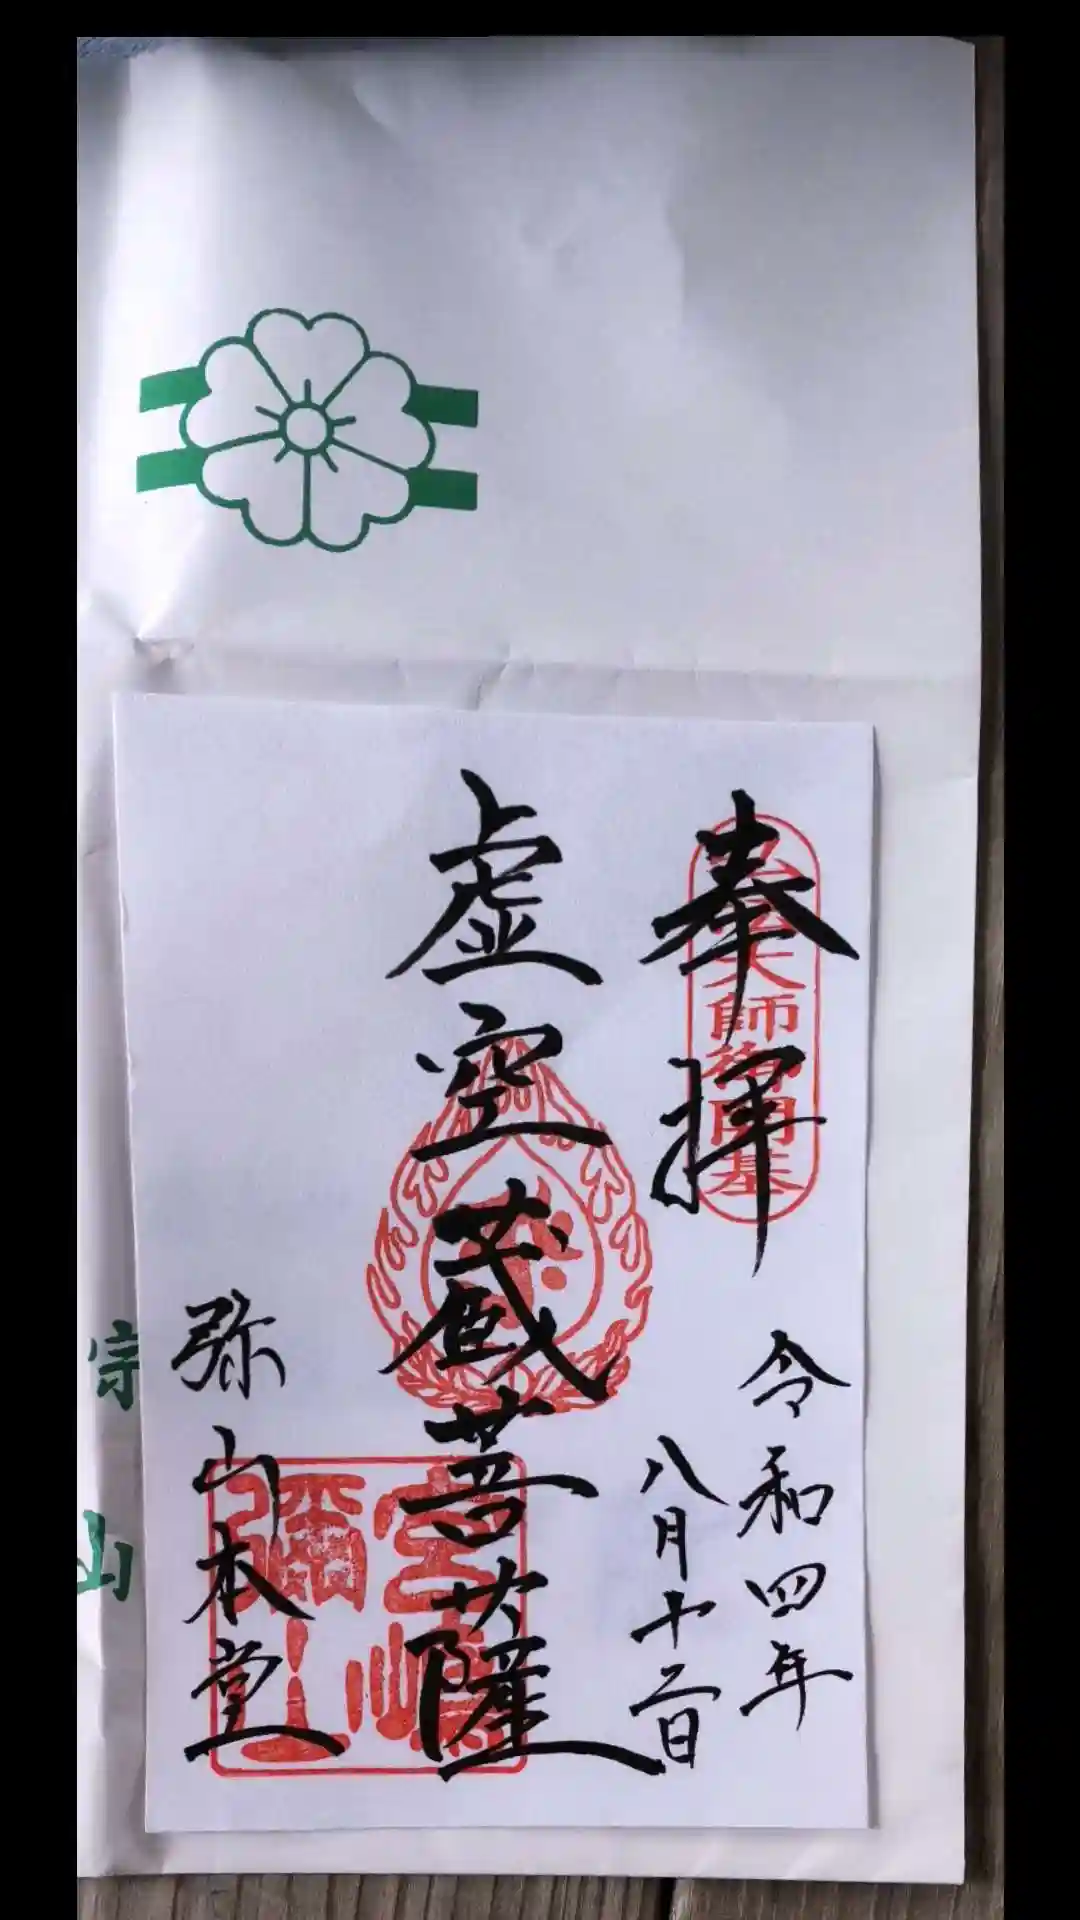 奉拝
令和四年
八月十二日
虚空蔵菩薩
弥山本堂
大師御開基
宮嶋
彌山
宗
山